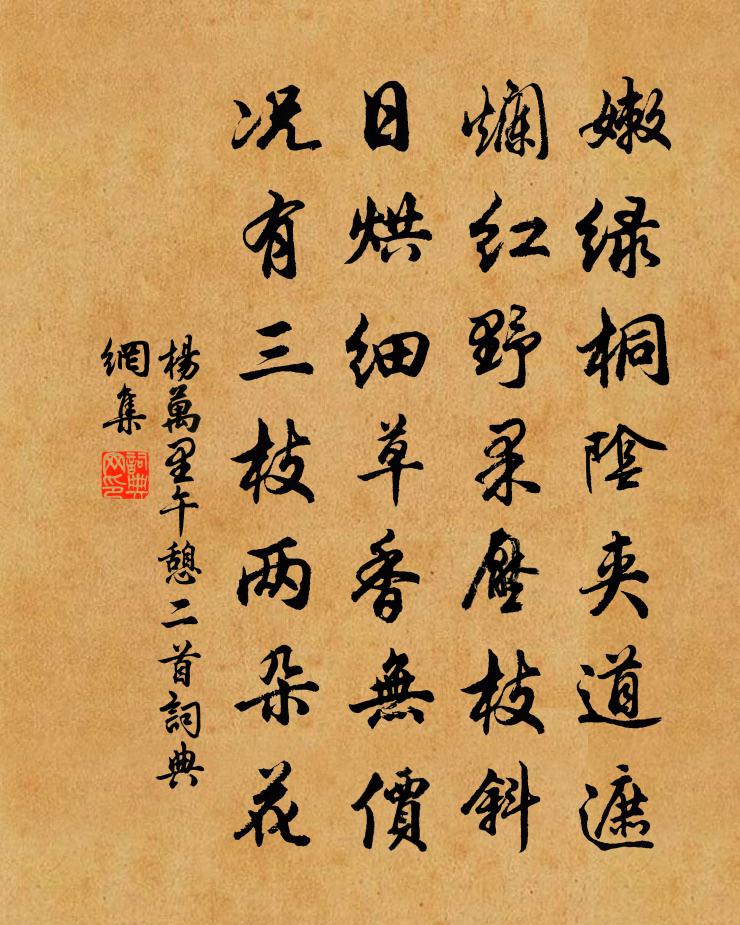 嫩绿桐陰夹道遮
爛红野果壓枝斜
日烘细草香無價
况有三枝两朵花
楊萬里午憩二首詞典
網集
詞典
网印